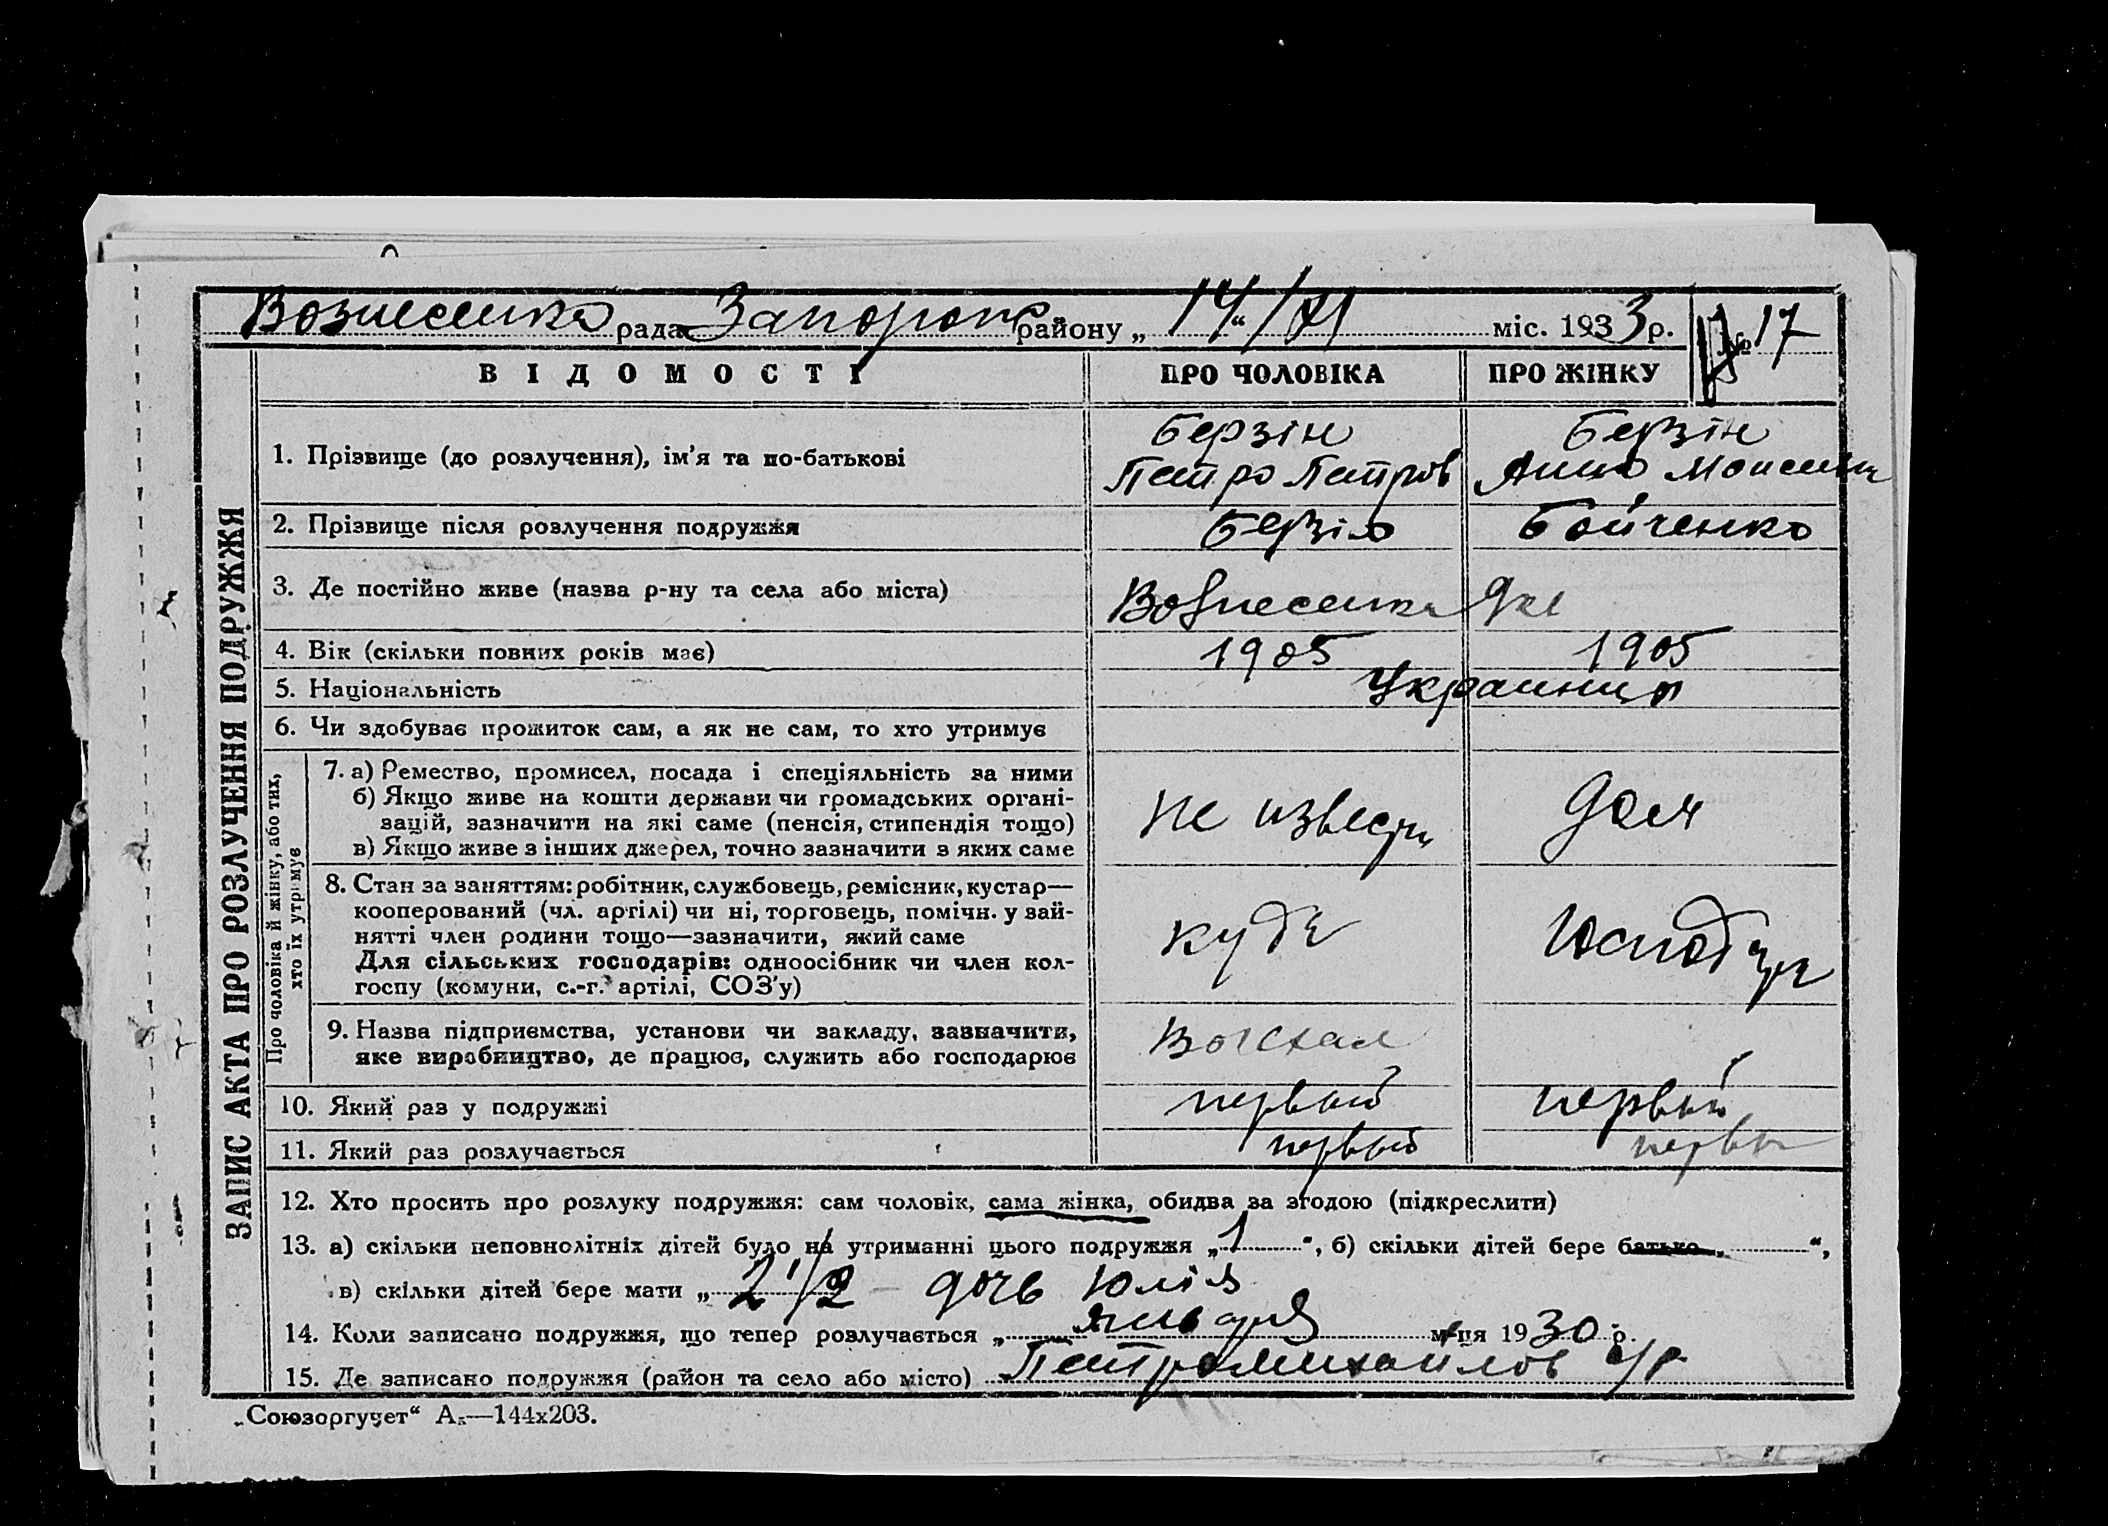 Вознесенка рада Запорож району „ 14 “ /VI міс. 1933 р. № 17
ВІДОМОСТІ ПРО ЧОЛОВІКА ПРО ЖІНКУ
ЗАПИС АКТА ПРО РОЗЛУЧЕННЯ ПОДРУЖЖЯ
Берзін Берзін
1. Прізвище (до розлучення), ім'я та по-батькові
Петро Петров Анна Моисеевн
2. Прізвище після розлучення подружжя Берзін Бойченко
3. Де постійно живе (назва р-ну та села або міста) Вознесенка
4. Вік (скільки повних років має) 1905 1905
5. Національність Украинцы
6. Чи здобуває прожиток сам, а як не сам, то хто утримує
Про чоловіка й жінку, або тих,
хто їх утримує
7. а) Ремество, промисел, посада і спеціяльність за ними
б) Якщо живе на кошти держави чи громадських органі-
зацій, зазначити на які саме (пенсія, стипендія тощо)
в) Якщо живе з інших джерел, точно зазначити з яких саме
не извест дом
8. Стан за заняттям: робітник, службовець, ремісник, кустар—
кооперований (чл. артілі) чи ні, торговець, помічн. у зай-
нятті член родини тощо—зазначити, який саме
Для сільських господарів: одноосібник чи член кол-
госпу (комуни, с.-г. артілі, СОЗ'у)
куде
9. Назва підприємства, установи чи закладу, зазначити,
яке виробництво, де працює, служить або господарює
10. Який раз у подружжі первый первый
11. Який раз розлучається первый первы
12. Хто просить про розлуку подружжя: сам чоловік, сама жінка, обидва за згодою (підкреслити)
13. а) скільки неповнолітніх дітей було на утриманні цього подружжя „ 1 “, б) скільки дітей бере батько „ “,
в) скільки дітей бере мати „ 2 1/2 – дочь Юлія
14. Коли записано подружжя, що тепер розлучається „ января м-ця 1930 р.
15. Де записано подружжя (район та село або місто) Петромихайлов с/р
„Союзоргучет“ А₅—144х203.